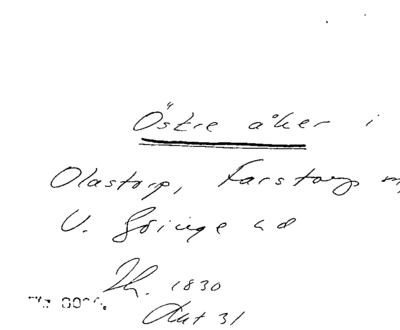 Östre åker i
Olastorp, Farstorp
V. Göinge hd
1830
31